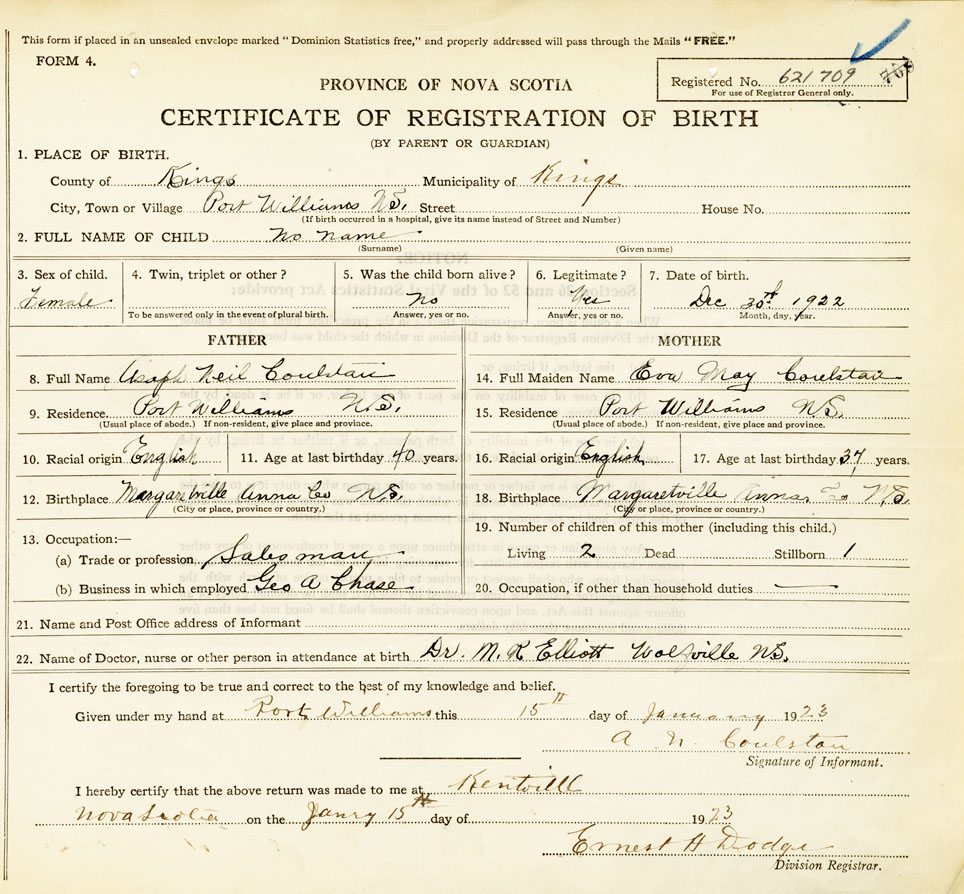 This form if placed in an unsealed envelope marked "Dominion Statistics free," and properly addressed will pass through the Mails "FREE."
FORM 4.
Registered No. 621709 709
For use of Registrar General only.
PROVINCE OF NOVA SCOTIA
CERTIFICATE OF REGISTRATION OF BIRTH
(BY PARENT OR GUARDIAN)
1. PLACE OF BIRTH.
County of Kings Municipality of Kings
City, Town or Village Port Williams N.S. Street House No.
(If birth occurred in a hospital, give its name instead of Street and Number)
2. FULL NAME OF CHILD No name
(Surname) (Given name)
3. Sex of child. 4. Twin, triplet or other? 5. Was the child born alive? 6. Legitimate? 7. Date of birth.
Female No Yes Dec 30th 1922
To be answered only in the event of plural birth. Answer, yes or no. Answer, yes or no. Month, day, year.
FATHER MOTHER
8. Full Name Asaph Neil Coulstan 14. Full Maiden Name Eva May Coulstan
9. Residence Port Williams N.S. 15. Residence Port Williams N.S.
(Usual place of abode.) If non-resident, give place and province. (Usual place of abode.) If non-resident, give place and province.
10. Racial origin English 11. Age at last birthday 40 years. 16. Racial origin English 17. Age at last birthday 37 years.
12. Birthplace Margaretville Anna Co N.S. 18. Birthplace Margaretville Anna. Co N.S.
(City or place, province or country.) (City or place, province or country.)
13. Occupation:— 19. Number of children of this mother (including this child.)
(a) Trade or profession Salesman Living 2 Dead Stillborn 1
(b) Business in which employed Geo A Chase 20. Occupation, if other than household duties —
21. Name and Post Office address of Informant
22. Name of Doctor, nurse or other person in attendance at birth Dr. M. R Elliott Wolfville N.S.
I certify the foregoing to be true and correct to the best of my knowledge and belief.
Given under my hand at Port Williams this 15th day of January 1923
A. N. Coulstan
Signature of Informant.
I hereby certify that the above return was made to me at Kentville
Nova Scotia on the Janry 15th day of 1923
Ernest H Dodge
Division Registrar.